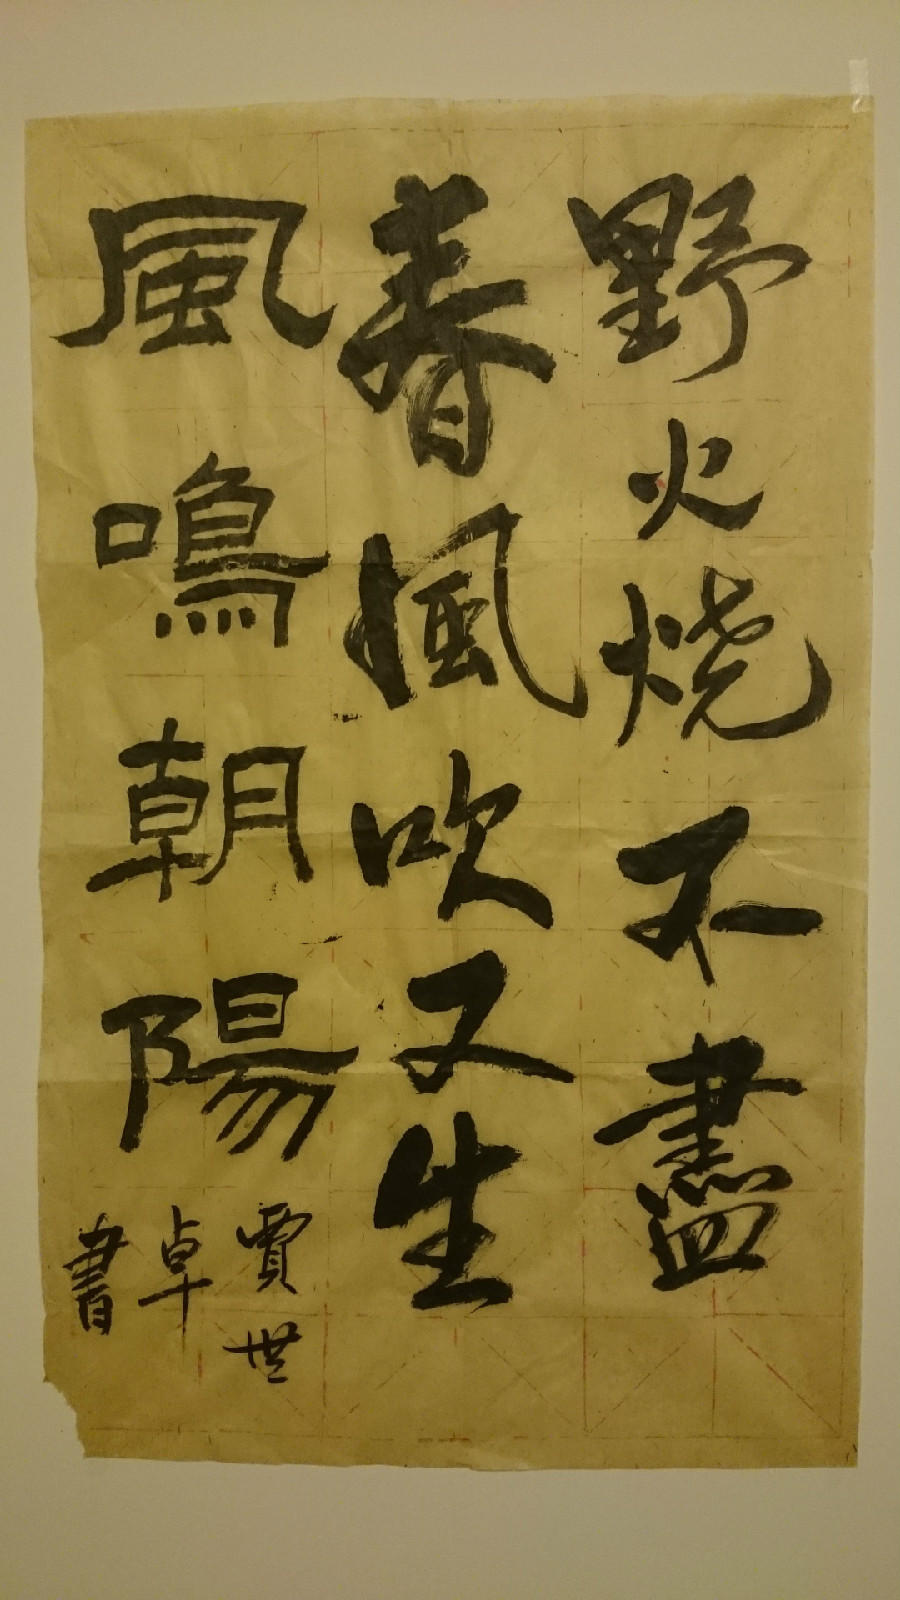 野火燒不盡
春風吹又生
風鳴朝陽
賈世
卓
書